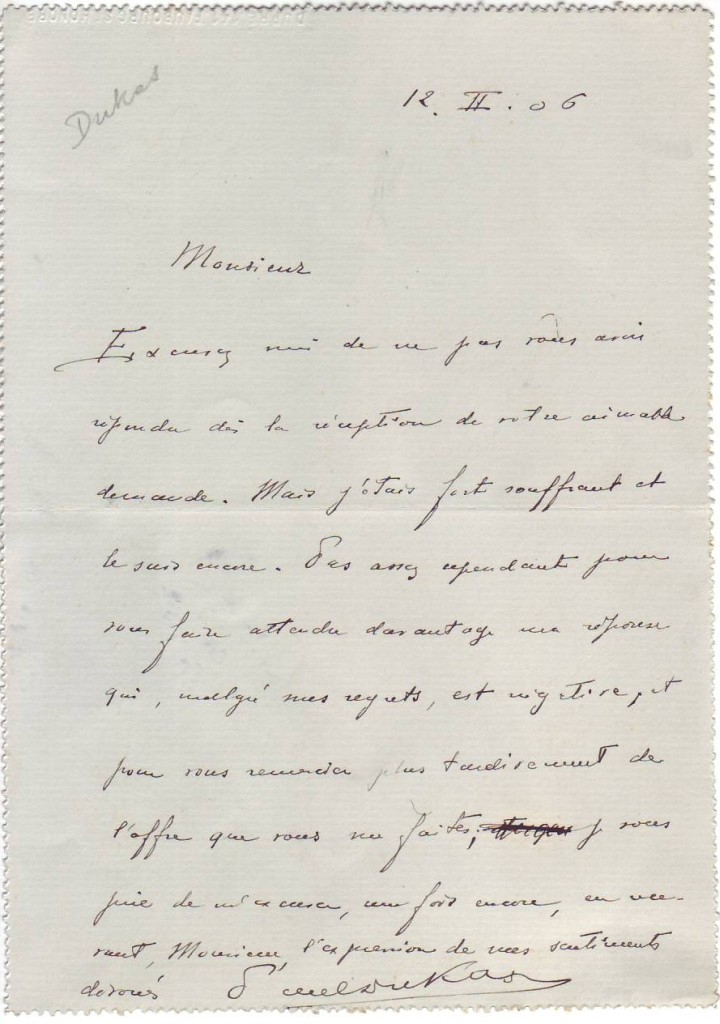 Dukas
12. II. 06
Monsieur
Excusez moi de ne pas vous avoir
répondu dès la réception de votre aimable
demande. Mais j'étais fort souffrant et
le suis encore. Pas assez cependant pour
vous faire attendre davantage ma réponse
qui, malgré mes regrets, est négative, et
pour vous remercier plus tardivement de
l'offre que vous me faites, je vous
prie de m'excuser, une fois encore, en rece-
vant, Monsieur, l'expression de mes sentiments
dévoués Paul Dukas